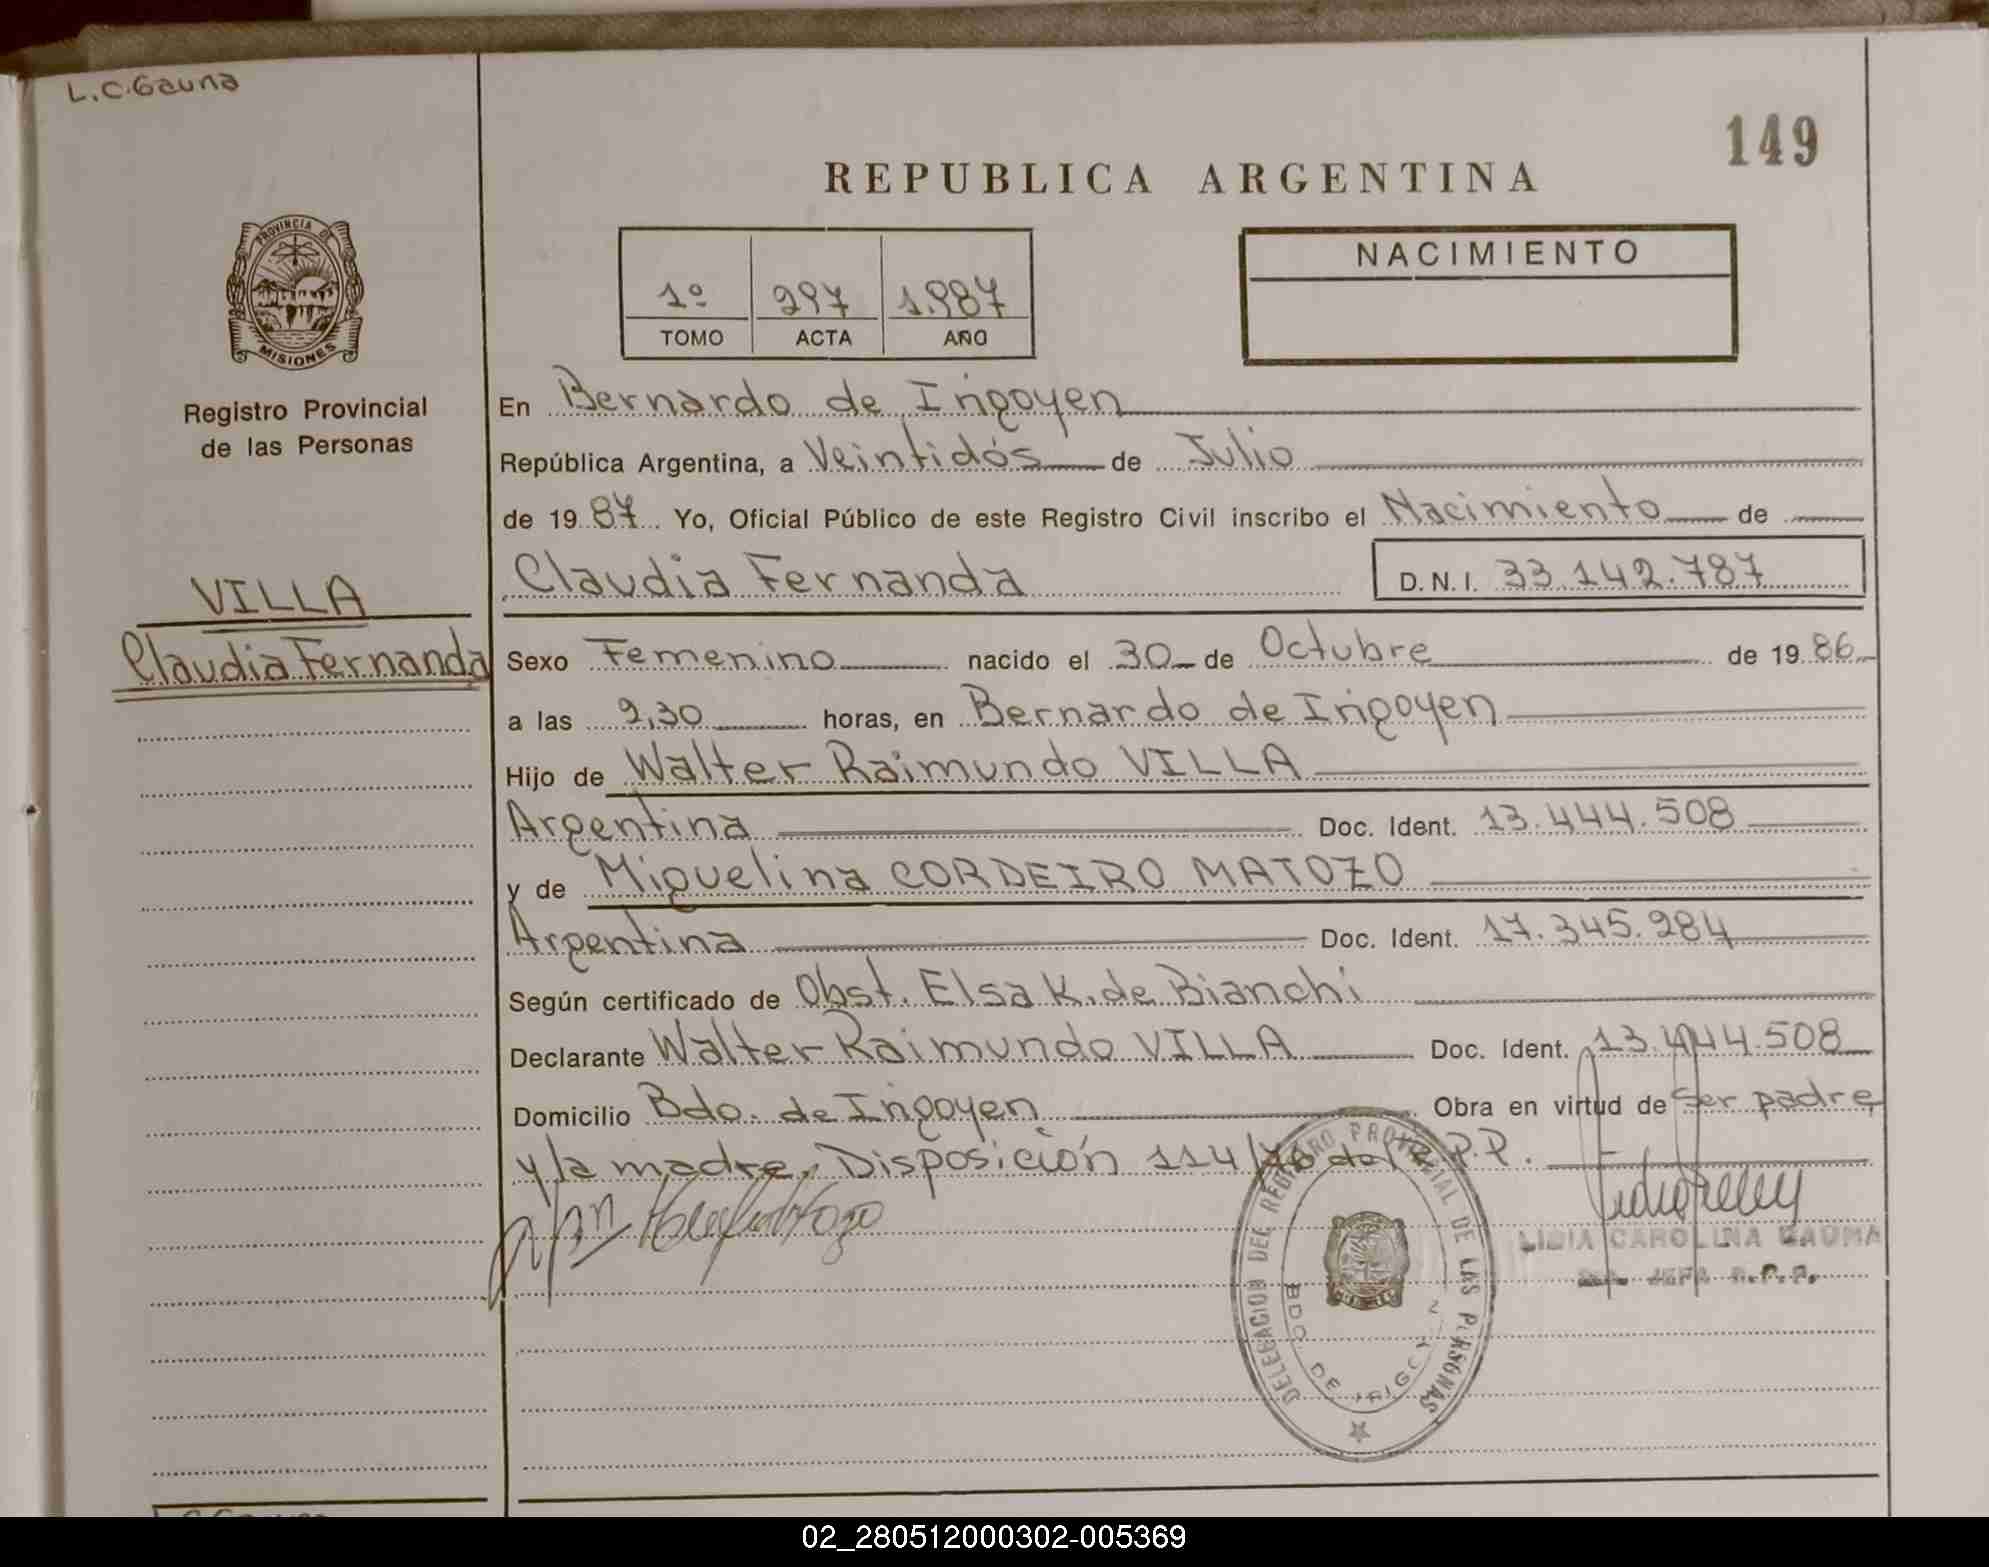 L.C.Gauna
149
REPUBLICA ARGENTINA
PROVINCIA DE
MISIONES
Registro Provincial
de las Personas
1º 297 1.987
TOMO ACTA AÑO
NACIMIENTO
En Bernardo de Irigoyen
República Argentina, a Veintidós de Julio
de 1987. Yo, Oficial Público de este Registro Civil inscribo el Nacimiento de
Claudia Fernanda D.N.I. 33.142.787
VILLA
Claudia Fernanda
Sexo Femenino nacido el 30 de Octubre de 1986
a las 2,30 horas, en Bernardo de Irigoyen
Hijo de Walter Raimundo VILLA
Argentina Doc. Ident. 13.444.508
y de Miguelina CORDEIRO MATOZO
Argentina Doc. Ident. 17.345.284
Según certificado de Obst. Elsa K. de Bianchi
Declarante Walter Raimundo VILLA Doc. Ident. 13.444.508
Domicilio Bdo. de Irigoyen Obra en virtud de Ser padre
y la madre, Disposición 114/76 del R.P.P.
LIDIA CAROLINA GAUNA
JEFA R.P.P.
DELEGACION DEL REGISTRO PROVINCIAL DE LAS PERSONAS
BDO. DE IRIGOYEN
02_280512000302-005369